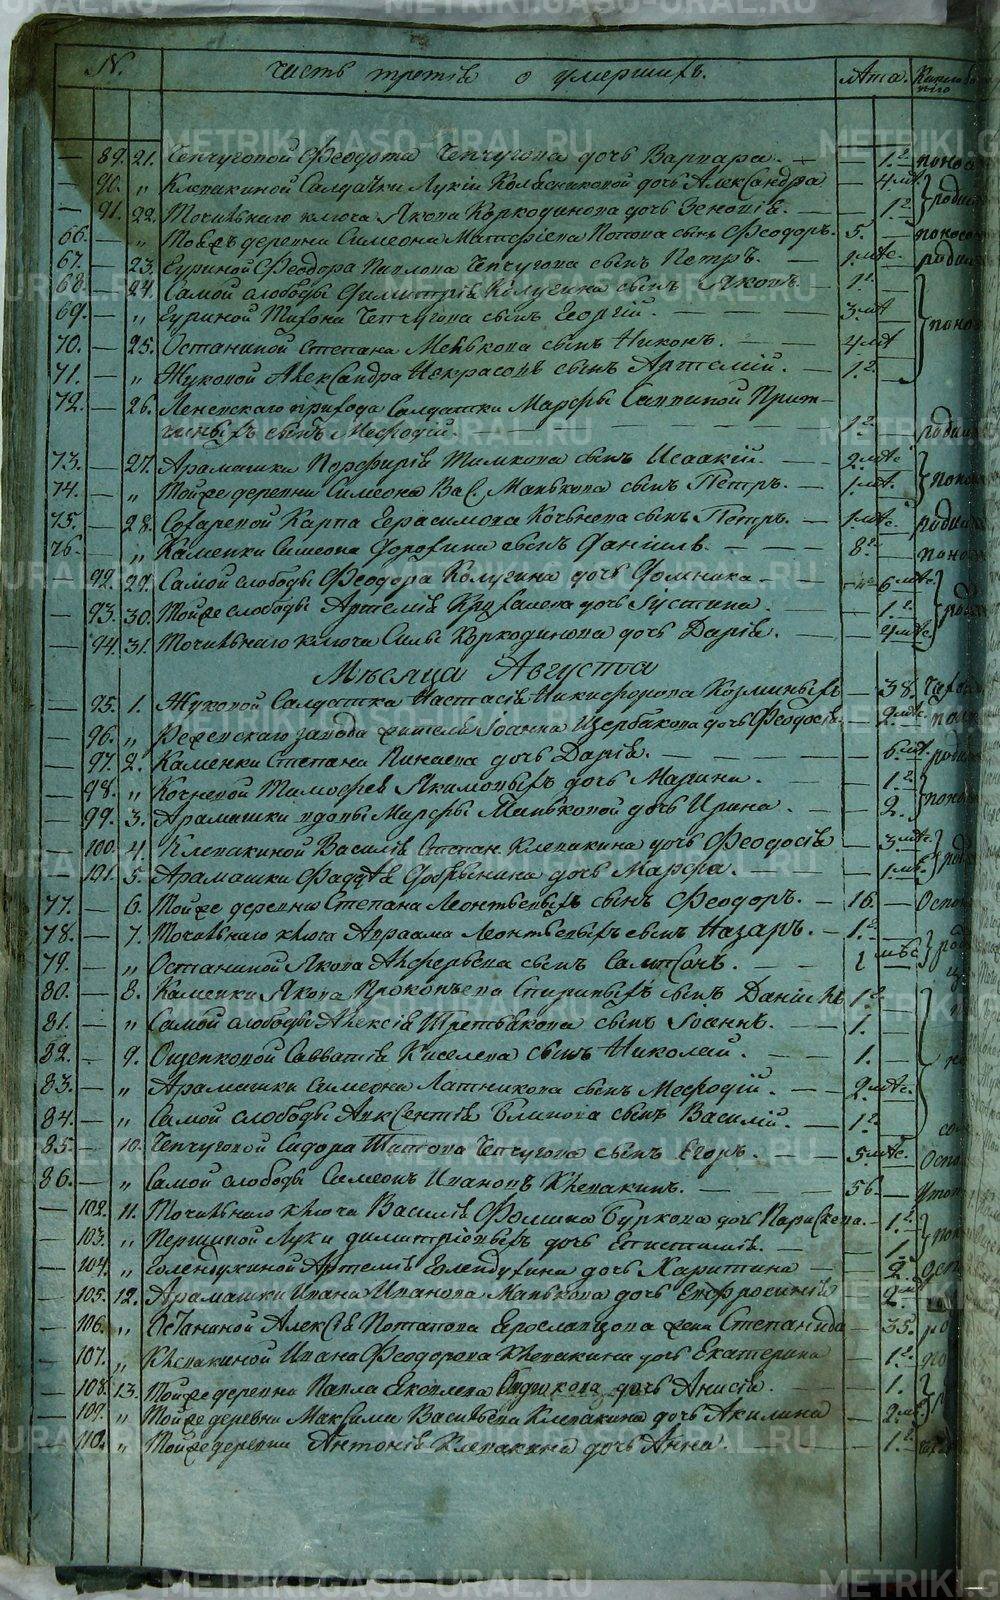 N. часть третія о умершихъ. лѣта.
— 89. 21. Чепчуговой Феодота Чепчугова дочь Варвара. — 1.
— 90. „ Клевакиной Салдачки Лукіи дочь Александра — 4 мц.
— 91. 22. Точильнаго ключа Якова Коркодинова дочь Зеновія. — 1.
66. — „ Тойже деревни Симеона Матфіева Попова сынъ Феодоръ. 5.
67. — 23. Гуриной Феодора Павлова Чепчугова сынъ Петръ. —
68. — 24. Самой слободы Димитрія Колугина сынъ Яковъ. — 1.
69. — „ Гуриной Тихона Чепчугова сынъ Георгій. — 3.
70. — 25. Останиной Степана Менькова сынъ Никонъ. — 4
71. — „ Жуковой Александра Некрасовъ сынъ Артемій. — 1.
72. — 26. Леневскаго прихода Салдатки Марфы Саввиной
сынъ Мефодій. — 1.
73. — 27. Арамашки Порфирія Тимкова сынъ Исаакій. — 2.
74. — „ Тойже деревни Симеона Вас. Манькова сынъ Петръ. — 1.
75. — 28. Сохаревой Карпа Герасимова Кочьнева сынъ Петръ. — 1
76. — „ Каменки Симеона Дорохина сынъ Даніилъ. — 8
— 92. 29. Самой слободы Феодора Колугина дочь Домника — 6
— 93. 30. Тойже слободы Артемія дочь Іустина. — 1.
— 94. 31. Точильнаго ключа Силы Коркодинова дочь Дарія. — 4
Мѣсяца Августа
— 95. 1. Жуковой Салдатка Настасія Никифорова Козминыхъ — 38.
— 96. „ Режевскаго завода жителя Іоанна Щербакова дочь Феодосія 2.
— 97. 2. Каменки Степана Пинаева дочь Дарія. — 6
— 98. „ Кочневой Тимофея Якимовыхъ дочь Марина. — 1.
— 99. 3. Арамашки вдовы Марфы Маньковой дочь Ирина. — 2.
— 100. 4. Клевакиной Василія Степан. Клевакина дочь Феодосія 3
— 101. 5. Арамашки Фаддѣя дочь Марфа. — 1.
77. — 6. Тойже деревни Степана Леонтьевыхъ сынъ Феодоръ. — 16.
78. — 7. Точильнаго ключа Авраама Леонтьевыхъ сынъ Назаръ. — 1.
79. — „ Останиной Якова Алферьева сынъ Сампсонъ. — 1
80. — 8. Каменки Якова Прокопьева сынъ Даніилъ 1
81. — „ Самой слободы Алексія Третьякова сынъ Іоаннъ. — 1.
82. — 9. Ощепковой Савватія Киселева сынъ Николай. — 1.
83. — „ Арамашки Симеона Латникова сынъ Мефодій. — 2
84. — „ Самой слободы Авксентія Блинова сынъ Василій. — 1
85. — 10. Чепчуговой Сидора Титова Чепчугова сынъ Егоръ. — 5
86. — „ Самой слободы Симеонъ Ивановъ Клевакинъ. — 56.
— 102. 11. Точильнаго ключа Василія Фомина Буркова дочь Параскева. — 1.
— 103. „ Першиной Луки Димитріевыхъ дочь Епистимія. — 1.
— 104. „ Голендухиной Артемія Голендухина дочь Харитина — 2.
— 105. 12. Арамашки Ивана Иванова Манькова дочь Евфросинія 2.
— 106. „ Останиной Алексія Потапова Ерославцова жена Степанида 35.
— 107. „ Клевакиной Ивана Феодорова Клевакина дочь Екатерина 1.
— 108. 13. Тойже деревни Павла Яковлева дочь Анисія. — 1.
— 109. „ Тойже деревни Максима Васильева Клевакина дочь Акилина 2.
— 110. „ Тойже деревни Антонія Клевакина дочь Анна. — 1.
METRIKI.GASO-URAL.RU